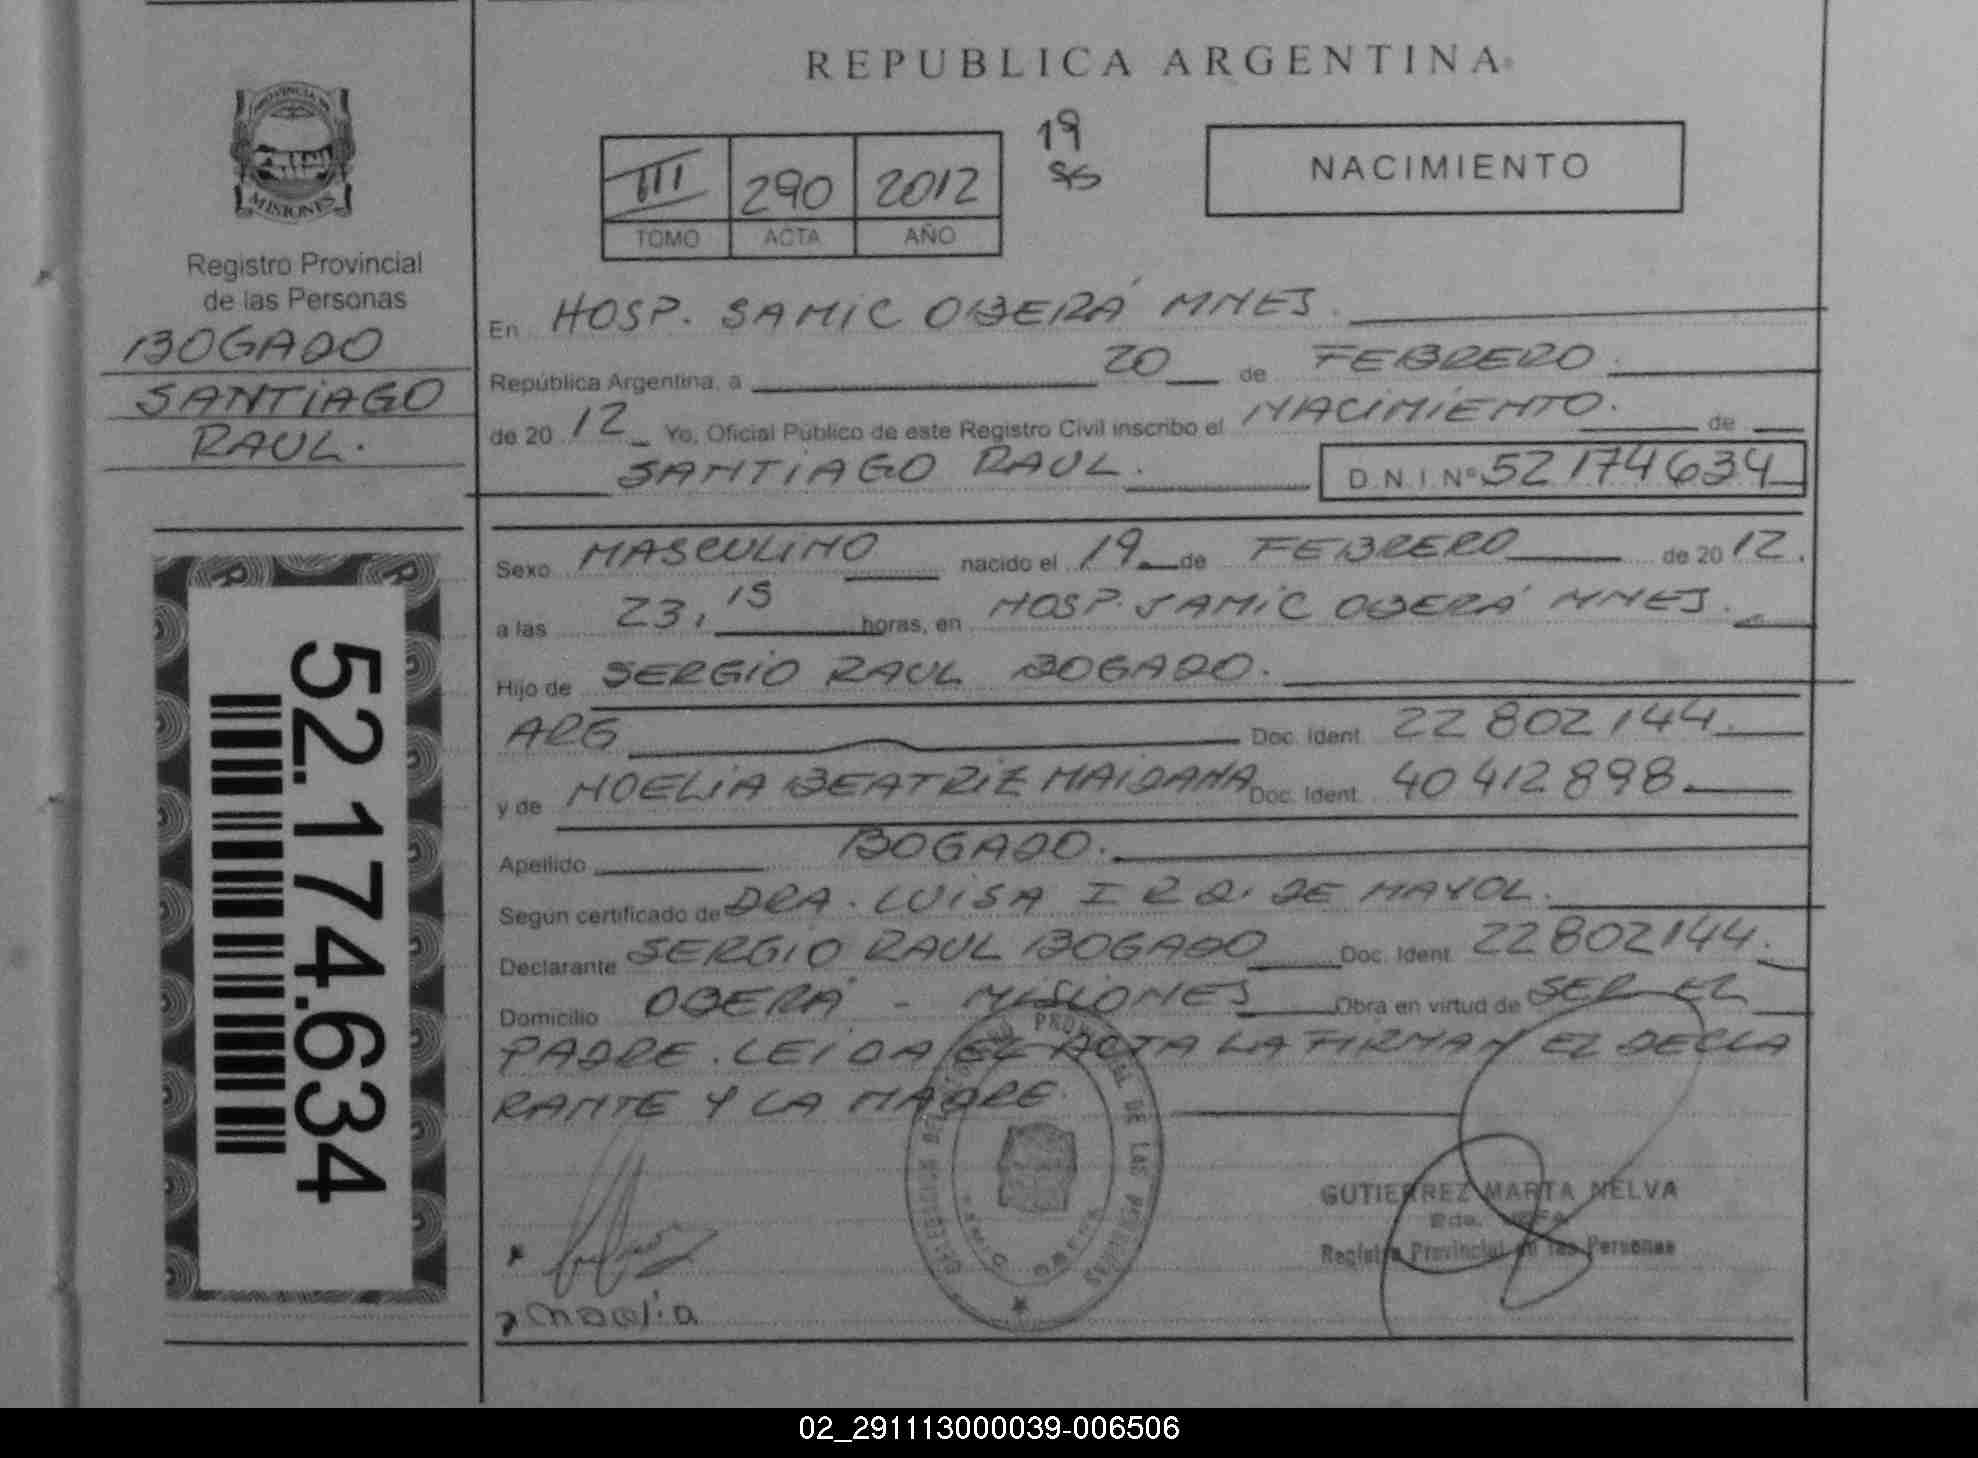 REPUBLICA ARGENTINA
PROVINCIA DE
MISIONES
Registro Provincial
de las Personas
BOGADO
SANTIAGO
RAUL.
III 290 2012
TOMO ACTA AÑO
19
NACIMIENTO
En HOSP. SAMIC OBERÁ MNES.
República Argentina, a 20 de FEBRERO.
de 20 12 Yo, Oficial Público de este Registro Civil inscribo el NACIMIENTO. de
SANTIAGO RAUL. D.N.I Nº 52174634
Sexo MASCULINO nacido el 19 de FEBRERO de 20 12.
a las 23,15 horas, en HOSP. SAMIC OBERÁ MNES.
Hijo de SERGIO RAUL BOGADO.
ARG Doc. Ident. 22 802 144.
y de NOELIA BEATRIZ MAIDANA Doc. Ident. 40 412 898
Apellido BOGADO.
Según certificado de DRA. LUISA I R D. DE MAYOL.
Declarante SERGIO RAUL BOGADO Doc. Ident. 22802144.
Domicilio OBERÁ - MISIONES Obra en virtud de SER EL
PADRE. LEIDA EL ACTA LA FIRMAN EL DECLA
RANTE Y LA MADRE.
52.174.634
PROVINCIAL DE LAS PERSONAS
GUTIERREZ MARTA NELVA
Registro Provincial de las Personas
Noelia
02_291113000039-006506